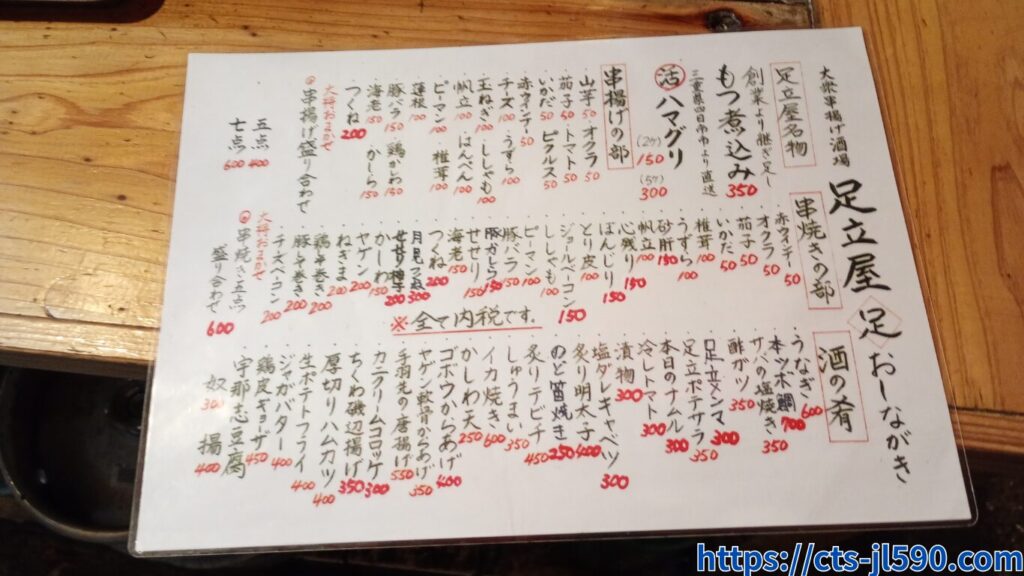 大衆串揚げ酒場 足立屋 足 おしながき
足立屋名物
創業より継ぎ足し
もつ煮込み 350
三重県四日市市より直送
活 ハマグリ (2ヶ) 150 (5ヶ) 300
串揚げの部
山芋 50
オクラ 50
茄子 50
トマト 50
いかだ 50
ピラルス 50
赤ウィンナー 50
チーズ 100
うずら 100
玉ねぎ 100
ししゃも 100
帆立 100
はんぺん 100
ピーマン 100
椎茸 100
蓮根 100
豚バラ 150
鶏かわ 150
海老 150
かしら 150
つくね 200
大将おまかせ
串揚げ盛り合わせ
五点 400
七点 600
串焼きの部
赤ウィンナー 50
オクラ 50
茄子 50
いかだ 50
椎茸 100
うずら 100
砂肝 150
帆立 100
心残り 150
ぼんじり 150
とり皮 100
ジョールベーコン 150
ししゃも 100
ピーマン 100
豚バラ 150
豚かしら 150
せせり 150
海老 150
つくね 200
月見つくね 300
せせり柚子 200
かしわ 150
ヤゲン 200
ねぎま 200
鶏しそ巻き 200
豚しそ巻き 200
チーズベーコン 200
大将おまかせ
串焼き五点
盛り合わせ 600
※全て内税です。
酒の肴
うなぎ 600
本ツボ鯛 700
サバの塩焼き 350
酢ガツ 350
足立メンマ 300
足立ポテサラ 350
本日のナムル 300
冷しトマト 300
漬物 300
塩ダレキャベツ 300
炙り明太子 400
のど笛焼き 250
炙りテビチ 450
しゅうまい 350
イカ焼き 600
かしわ天 250
ゴボウからあげ 400
ヤゲン軟骨からあげ 350
手羽先の唐揚げ 550
カニクリームコロッケ 300
ちくわ磯辺揚げ 350
厚切りハムカツ 400
生ポテトフライ 400
ジャガバター 400
鶏皮ギョーザ 450
宇那志豆腐 400
奴 300
揚 400
https://cts-jl590.com